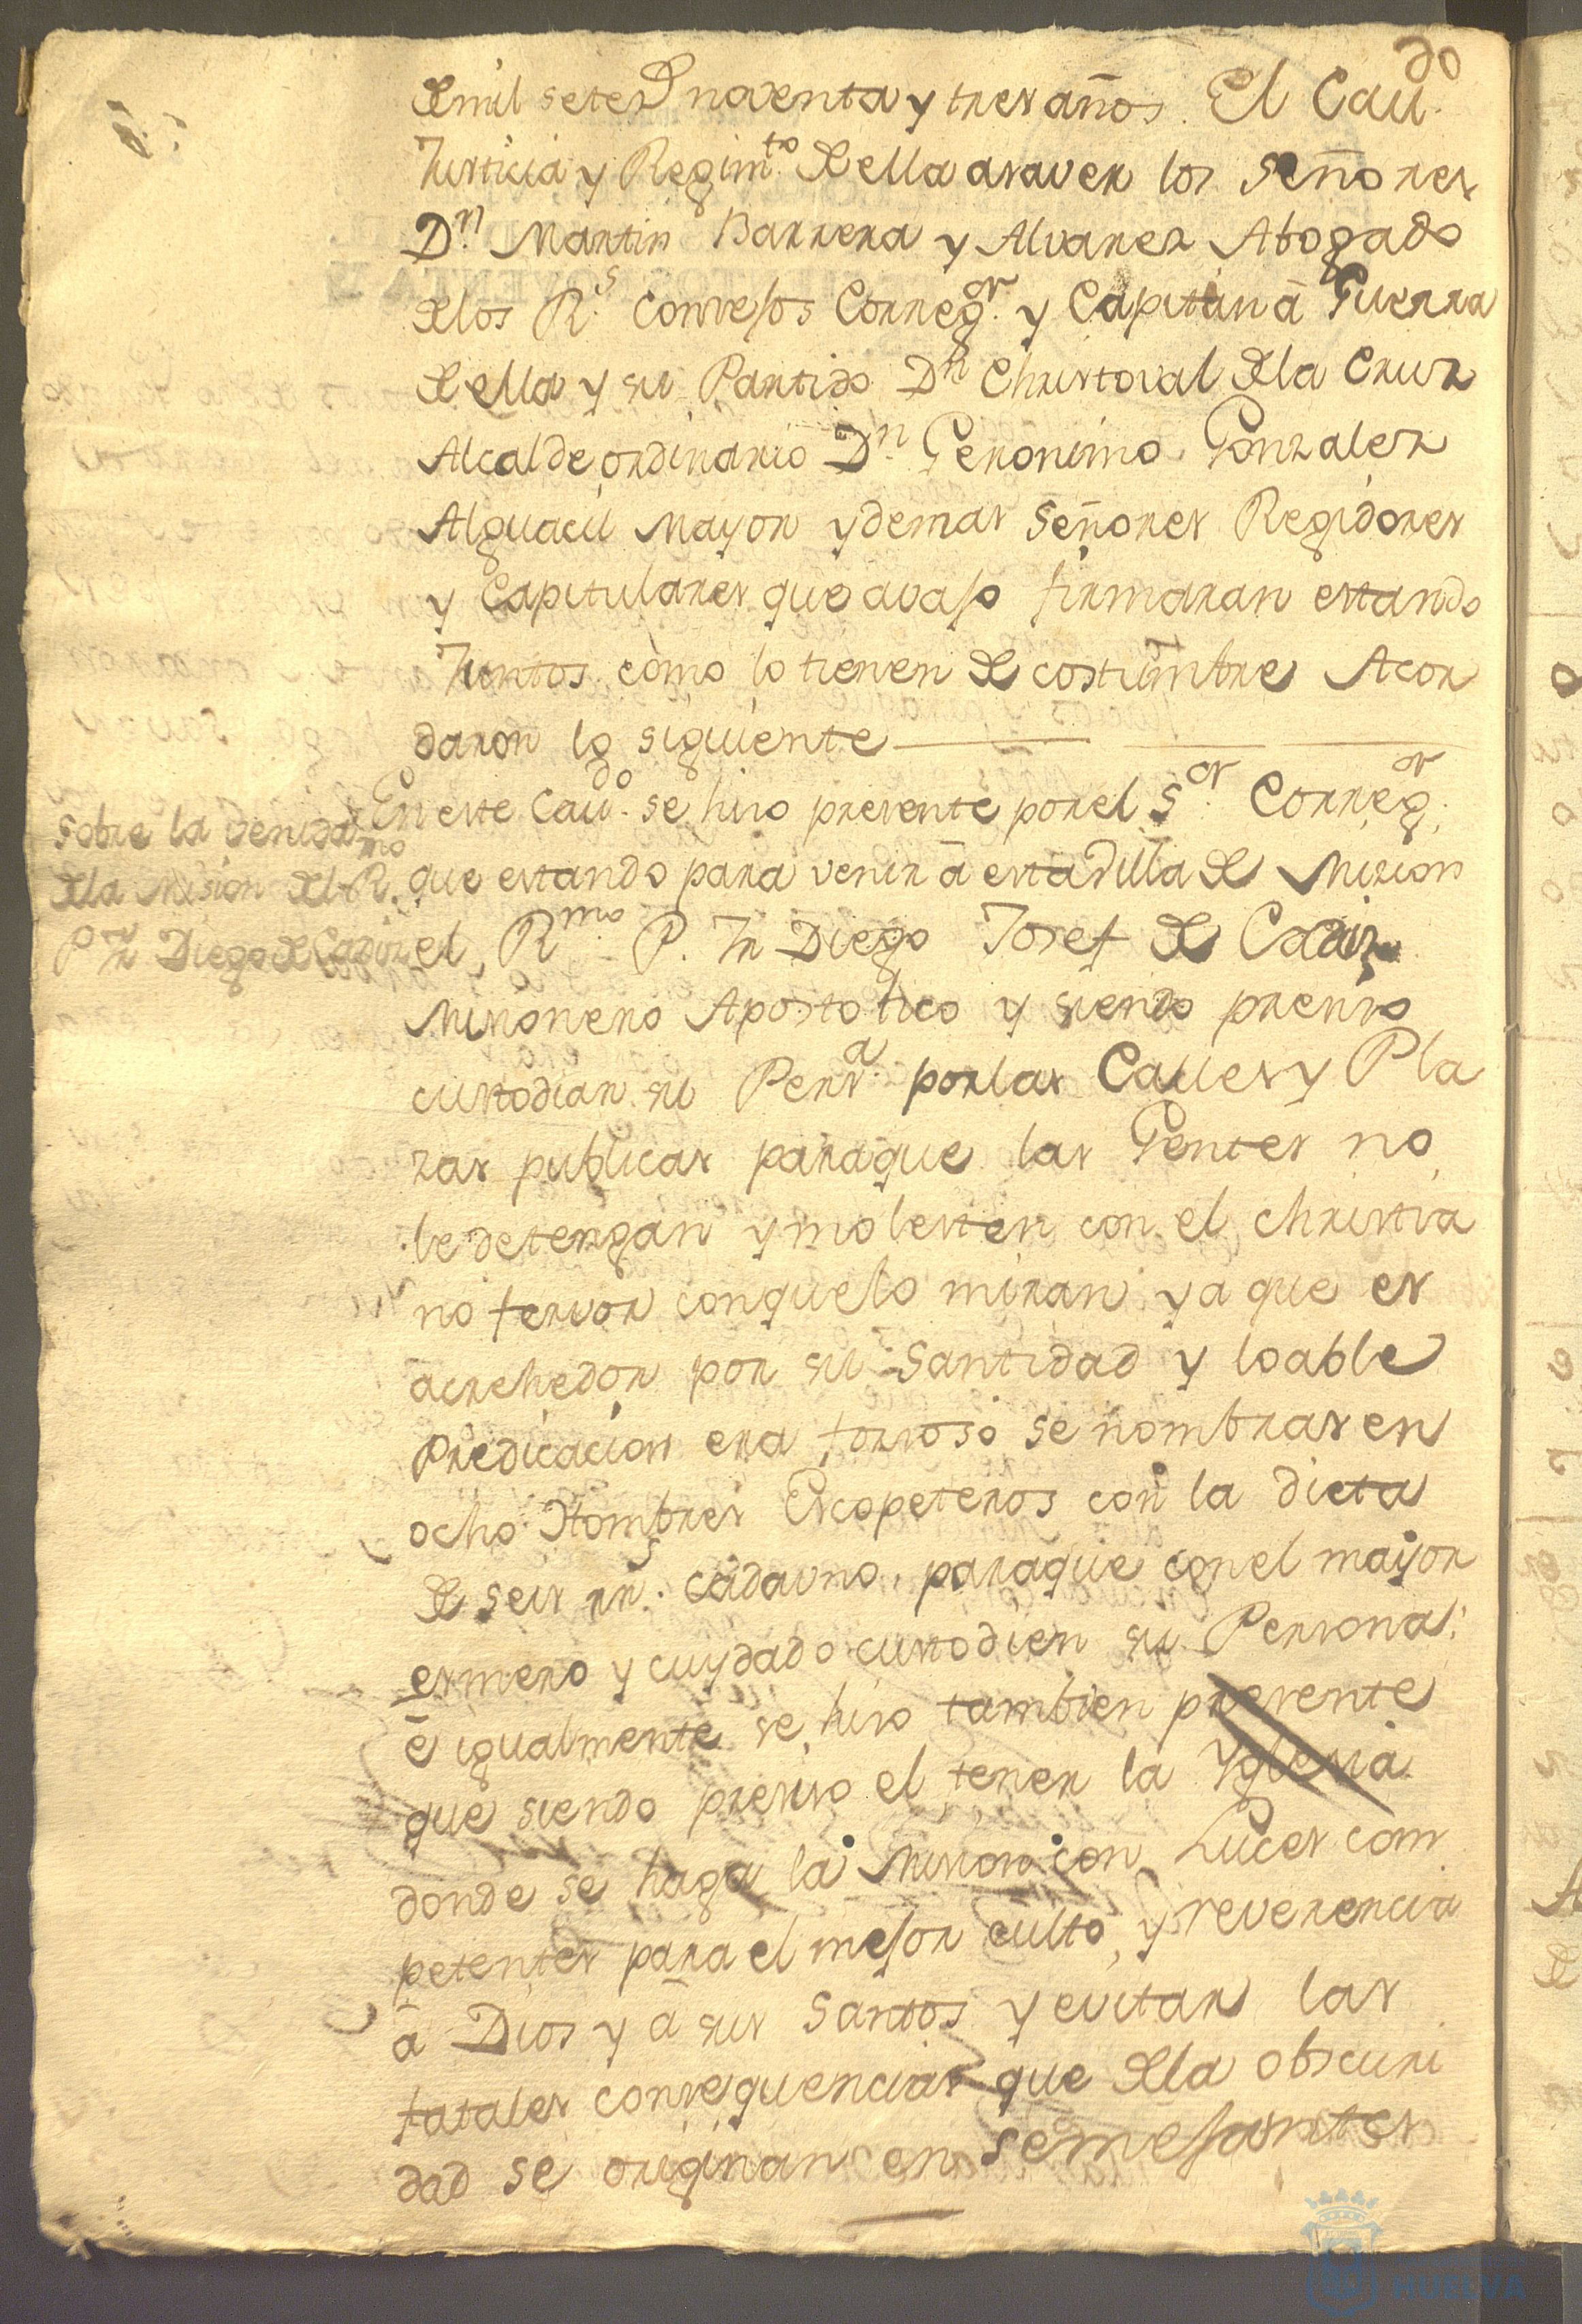 de mil setec.s noventa y tres años. El Cau.do
Justicia y Regim.to de ella asaver los Señores
D.n Martin Barrera y Alvarez Abogado
de los R.s Consejos Correg.or y Capitan â Guerra
de ella y su Partido D.n Christoval de la Cruz
Alcalde ordinario D.n Geronimo Gonzalez
Alguacil Mayor y demas Señores Regidores
y Capitulares que avajo firmaran estando
Juntos como lo tienen de costumbre Acor
daron lo siguiente
Sobre la venida
de la Mision del R.mo
P Fr Diego de Cadiz
En este Cau.do se hizo presente por el S.or Correg.or
que estando para venir â esta Villa de Mision
el R.mo P. Fr Diego Josef de Cadiz
Misonero Apostolico y siendo preciso
custodiar su Pers.a por las Calles y Pla
zas publicas paraque las Gentes no
le detengan y molesten con el christia
no fervor conquelo miran ya que es
acrehedor por su Santidad y loable
Predicacion era forzoso se nombrasen
ocho Hombres Escopeteros con la dieta
de seis rr.s cadauno, paraque con el maior
esmero y cuydado custodien su Persona:
ê igualmente se hizo tambien presente
que siendo preciso el tener la Yglesia
donde se haga la Mision con Luces com
petentes para el mejor culto, y reverencia
â Dios y â sus Santos y evitar las
fatales consequencias que de la obscuri
dad se originan en semejantes
HUELVA